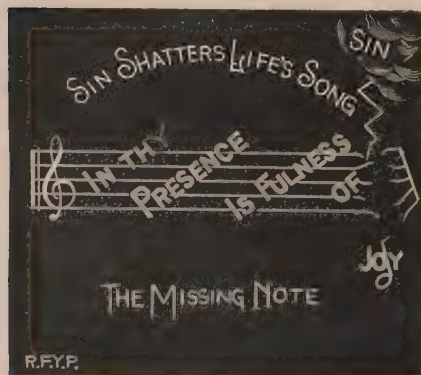 SIN
SIN SHATTERS LIFE'S SONG
IN THY
PRESENCE
IS FULNESS
OF
JOY
THE MISSING NOTE
R.F.Y.P.